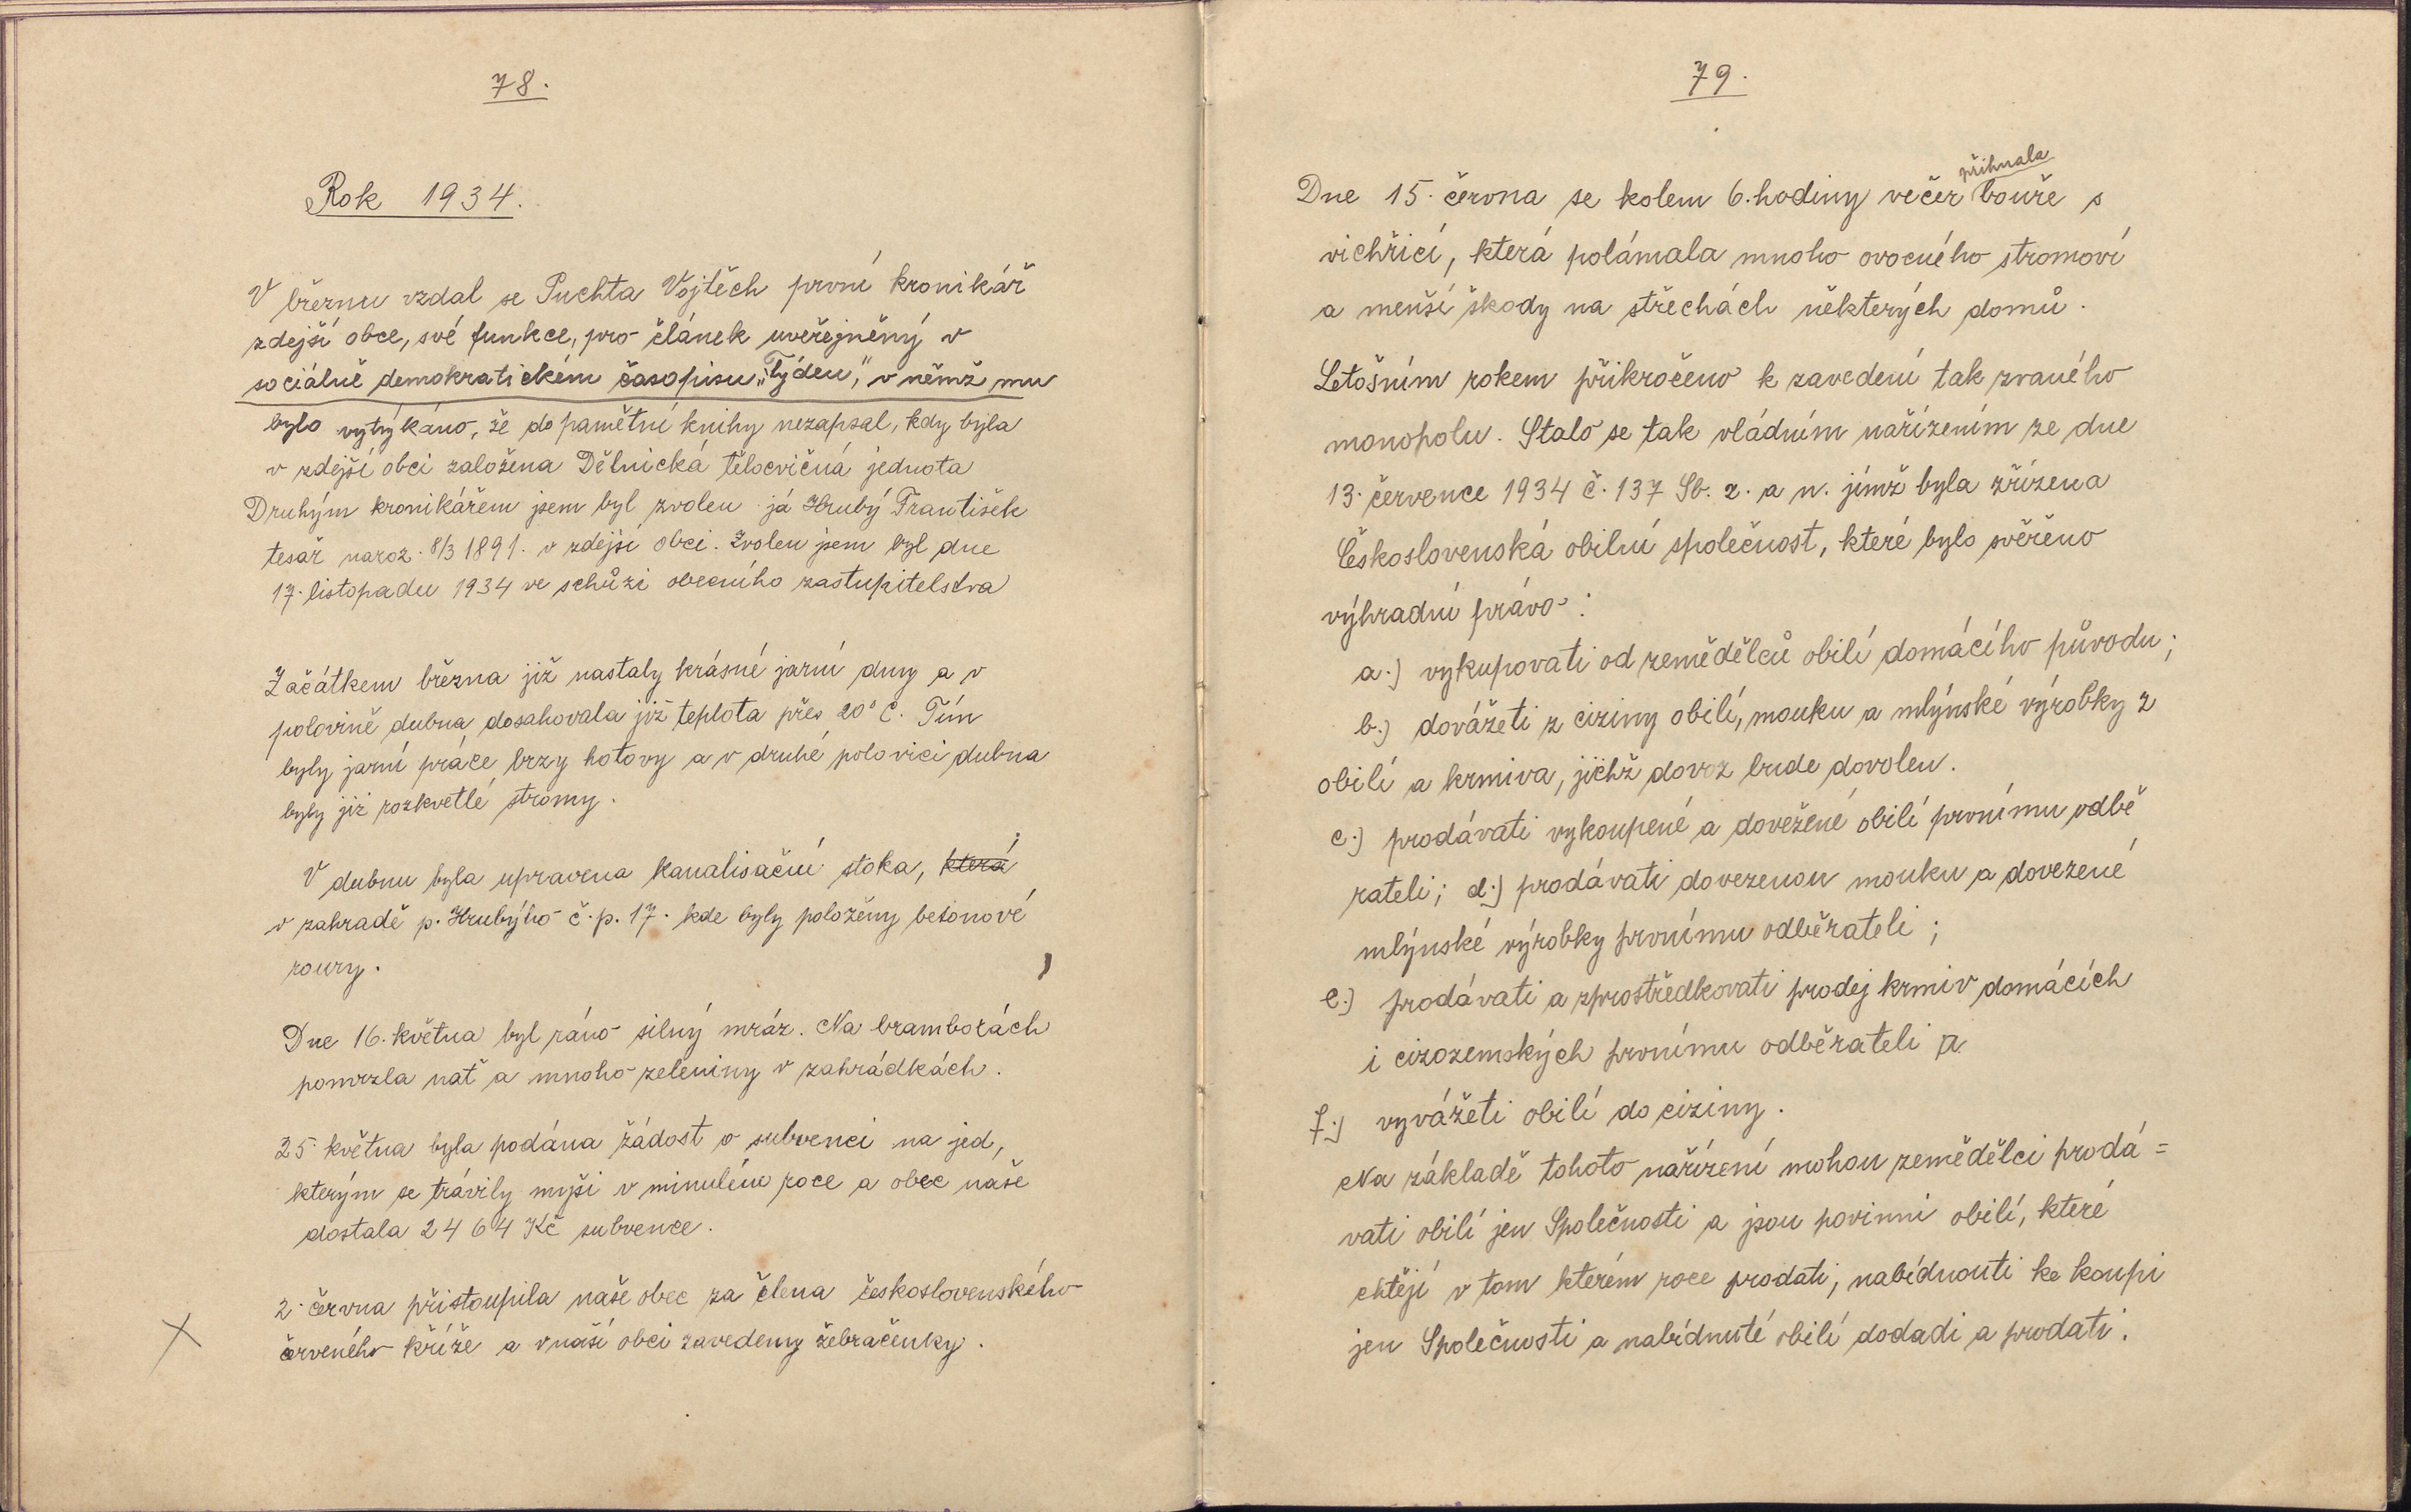 78.
Rok 1934.
V březnu vzdal se Puchta Vojtěch první kronikář
zdejší obce, své funkce, pro článek uveřejněný v
sociálně demokratickém časopisu „Týden", v němž mu
bylo vytýkáno, že do pamětní knihy nezapsal, kdy byla
v zdejší obci založena Dělnická tělocvičná jednota
Druhým kronikářem jsem byl zvolen já Hrubý František
tesař naroz. 8/3 1891. v zdejší obci. Zvolen jsem byl dne
17. listopadu 1934 ve schůzi obecního zastupitelstva
Začátkem března již nastaly krásné jarní dny a v
polovině dubna dosahovala již teplota přes 20° C. Tím
byly jarní práce brzy hotovy a v druhé polovici dubna
byly již rozkvetlé stromy.
V dubnu byla upravena kanalisační stoka, která
v zahradě p. Hrubýho č. p. 17. kde byly položeny betonové
roury.
Dne 16. května byl ráno silný mráz. Na bramborách
pomrzla nať a mnoho zeleniny v zahrádkách.
25 května byla podána žádost o subvenci na jed,
kterým se trávily myši v minulém roce a obec naše
dostala 2464 Kč subvence.
2. června přistoupila naše obec za člena československého
červeného kříže a v naší obci zavedeny žebračenky.
79.
přihnala
Dne 15. června se kolem 6. hodiny večer bouře s
vichřicí, která polámala mnoho ovocného stromoví
a menší škody na střechách některých domů.
Letošním rokem přikročeno k zavedení tak zvaného
monopolu. Stalo se tak vládním nařízením ze dne
13. července 1934 č. 137 Sb. z. a n. jímž byla zřízena
Československá obilní společnost, které bylo svěřeno
výhradní právo:
a.) vykupovati od zemědělců obilí domácího původu;
b.) dovážeti z ciziny obilí, mouku a mlýnské výrobky z
obilí a krmiva, jichž dovoz bude dovolen.
c.) prodávati vykoupené a dovežené obilí prvnímu odbě
rateli; d.) prodávati dovezenou mouku a dovezené
mlýnské výrobky prvnímu odběrateli;
e.) prodávati a zprostředkovati prodej krmiv domácích
i cizozemských prvnímu odběrateli a
f.) vyvážeti obilí do ciziny.
Na základě tohoto nařízení mohou zemědělci prodá=
vati obilí jen Společnosti a jsou povinni obilí, které
chtějí v tom kterém roce prodati, nabídnouti ke koupi
jen Společnosti a nabídnuté obilí dodadi a prodati.